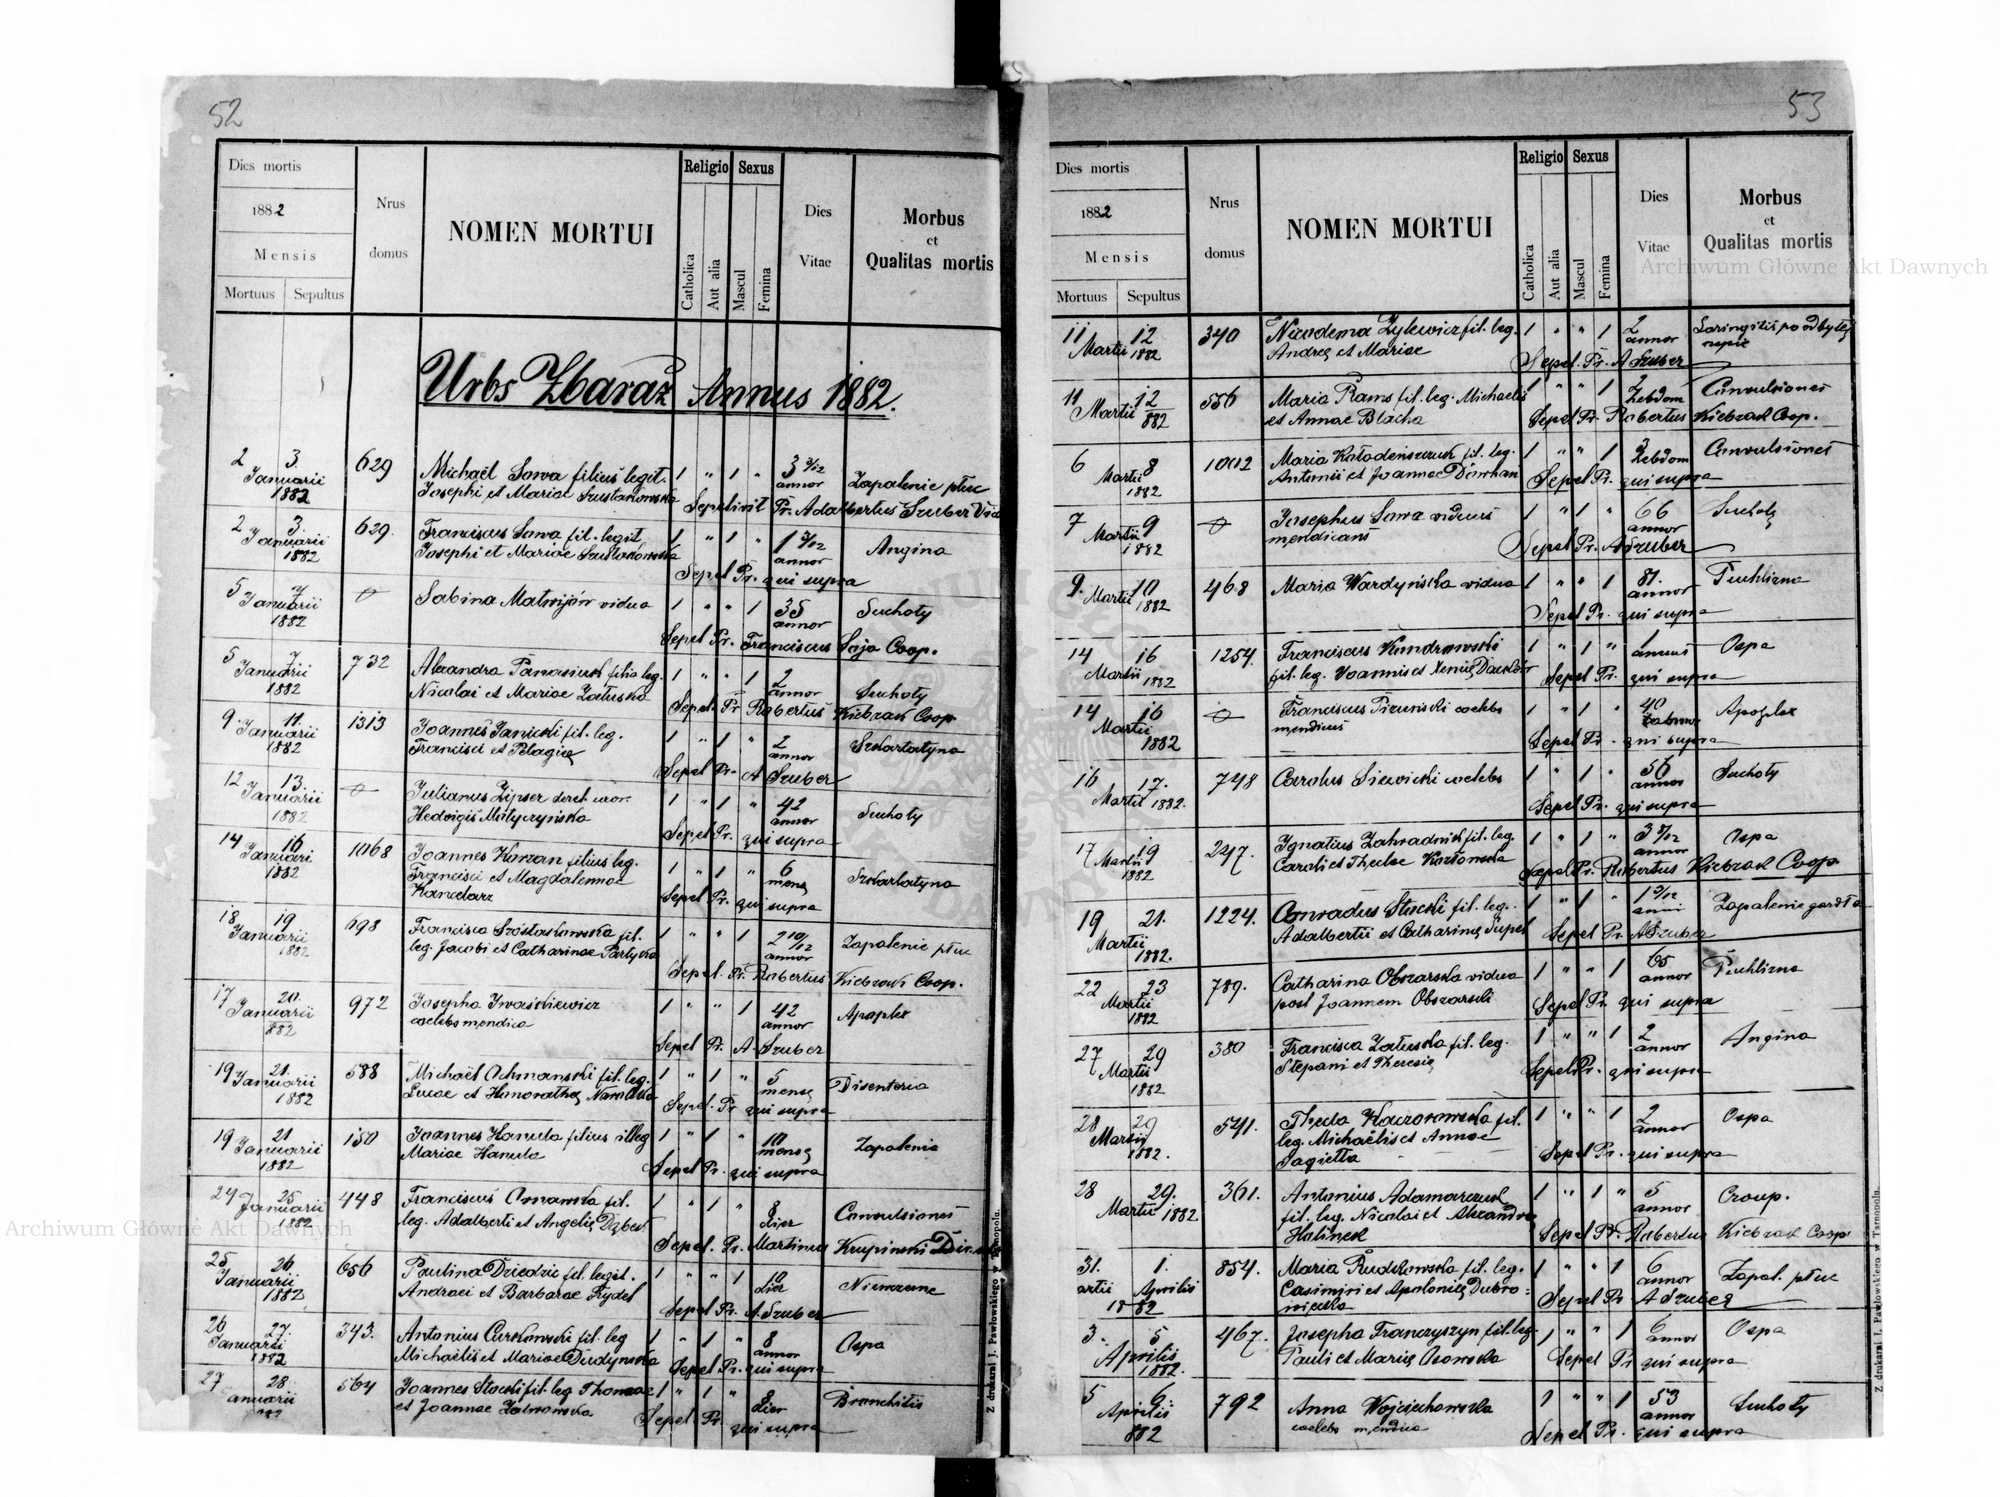 52
Dies mortis
1882
Mensis
Mortuus Sepultus
Nrus
domus
NOMEN MORTUI
Religio
Catholica
Aut alia
Sexus
Mascul
Femina
Dies
Vitae
Morbus
et
Qualitas mortis
Urbs Zbaraż Annus 1882.
2 3. 629 Michaël Sawa filius legit. 1 " 1 " 3 3/12
Januarii Josephi et Mariae annor Zapalenie płuc
1882 Sepelivit Pr. Adalbertus Szuber
2 3. 629. Franciscus Sawa fil. legit 1 " 1 "
Januarii Josephi et Mariae annor Angina
1882 Sepel Pr. qui supra
5 7 Sabina Matwijów vidua 1 " " 1 35 Suchoty
Januarii annor
1882 Sepel Pr. Franciscus Saja Coop.
5 7 732 Alexandra Panasiuk filia leg. 1 " " 1 2
Januarii Nicolai et Mariae Załuska annor Suchoty
1882 Sepel Pr Robertus Kiebzak Coop
9. 11. 1313 Joannes Janicki fil. leg. 1 " 1 " 2
Januarii Francisci et Pelagię annor Szkarlatyna
1882 Sepel Pr. A Szuber
12 13. Julianus Zipser 1 " 1 " 42
Januarii Hedvigis annor Suchoty
1882 Sepel Pr. qui supra
14 16 1068 Joannes Korzan filius leg. 1 " 1 " 6
Januari Francisci et Magdalennae mens Szkarlatyna
1882 Sepel Pr. qui supra
18 19 698 Francisca fil. 1 " " 1 2 10/12
Januarii leg. Jacobi et Catharinae Partyka annor Zapalenie płuc
1882 Sepel. Pr. Robertus Kiebzak Coop.
17 20. 972 Josepha Iwaśkiewicz 1 " " 1 42
Januarii caelebs mendica annor Apoplex
882 Sepel Pr. A. Szuber
19 21. 588 Michaël Achmanski fil. leg. 1 " 1 " 5
Januarii Lucae et Honorathę mens Disenteria
1882 Sepel. Pr qui supra
19 21 150 Joannes Hanula filius illeg 1 " 1 " 10
Januarii Mariae Hanula mensę Zapalenie
1882 Sepel Pr. qui supra
24 25 448 Franciscus fil. 1 " 1 " 8
Januarii leg. Adalberti et Angelię dier Convulsiones
1882 Sepel. Pr. Martinus Krupinski
25 26 656 Paulina Dziedzic fil. legit. 1 " " 1 10
Januarii Andraei et Barbarae Rydel dier
1882 Sepel Pr. A. Szuber
26 27. 343. Antonius Curkowski fil. leg 1 " 1 " 8 Ospa
Januarii Michaëlis et Mariae Dudyńska annor
1882 Sepel Pr. qui supra
27 28 564 Joannes Stocki fil. leg Thomae 1 " 1 " 8 Bronchitis
anuarii et Joannae dier
Sepel Pr qui supra
Z drukarni J. Pawłowskiego w Tarnopolu.
53
Dies mortis
1882
Mensis
Mortuus Sepultus
Nrus
domus
NOMEN MORTUI
Religio
Catholica
Aut alia
Sexus
Mascul
Femina
Dies
Vitae
Morbus
et
Qualitas mortis
11 12 340 Nicodema Zylewicz fil. leg. 1 " " 1 2 Laringitis po odbytej
Martii 1882 Andreę et Mariae annor ospie
Sepel. Pr. A Szuber
11 12 556 Maria Rams fil. leg. Michaelis 1 " " 1 2 Convulsiones
Martii 882 et Annae Blacha Sepel Pr. Robertus Kiebzak Coop.
6 8 1002 Maria Kaładenszczuk fil. leg. 1 " " 1 3 Convulsiones
Martii Antonii et Joannae
1882 Sepel Pr. qui supra
7 9 Josephus Sawa viduus 1 " 1 " 66 Suchoty
Martii mendicans annor
1882 Sepel Pr. A Szuber
9. 10 468 Maria Wardyńska vidua 1 " " 1 81. Puchlizna
Martii annor
1882 Sepel Pr. qui supra
14 16 1254. Franciscus Kondrowski 1 " 1 " 1 Ospa
Martii fil. leg. Joannis et Xenię annus
1882 Sepel Pr. qui supra
14 16 Franciscus caelebs 1 " 1 " 40 Apoplex
Martii mendicus
1882 Sepel Pr. qui supra
16 17. 748 Carolus Siewicki caelebs 1 " 1 " 56 Suchoty
Martii 1882. annor
Sepel Pr. qui supra
17 19 247. Ignatius Zahradnik fil. leg. 1 " 1 " Ospa
Martii Caroli et Theclae Kozłowska annor
1882 Sepel Pr. Robertus Kiebzak Coop
19 21. 1224. Conradus Stocki fil. leg. 1 " 1 " Zapalenie gardła
Martii Adalbertii et Catharinę Supel
1882. Sepel Pr. A Szuber
22 23 789. Catharina Obszarska vidua 1 " " 1 65 Puchlizna
Martii post Joannem Obszarski annor
1882 Sepel Pr. qui supra
27 29 380 Francisca Załuska fil. leg. 1 " " 1 2 Angina
Martii Stepani et Theresię annor
1882 Sepel Pr. qui supra
28 29 541. Thecla Kaczorowska fil. 1 " " 1 2 Ospa
Martii leg. Michaëlis et Annae annor
1882. Sagietta Sepel Pr. qui supra
28 29. 361. Antonius Adamarczuk 1 " 1 " 5 Croup.
Martii 1882 fil. leg. Nicolai et Alexandrae annor
Halinek Sepel Pr. Robertus Kiebzak Coop
31. 1. 854. Maria Rudkowska fil. leg. 1 " " 1 6 Zapal. płuc
artii Aprilis Casimiri et Apolonię Dubro- annor
1882 wiecka Sepel Pr A Szuber
3. 5 467. Josepha Franczyszyn fil. leg. 1 " " 1 6 Ospa
Aprilis Pauli et Marię Osowska annor
1882. Sepel Pr qui supra
5 6. 792 Anna Wojciechowska 1 " " 1 53 Suchoty
Aprilis caelebs mendica annor
882 Sepel Pr. qui supra
Z drukarni J. Pawłowskiego w Tarnopolu.
Archiwum Główne Akt Dawnych
Archiwum Główne Akt Dawnych